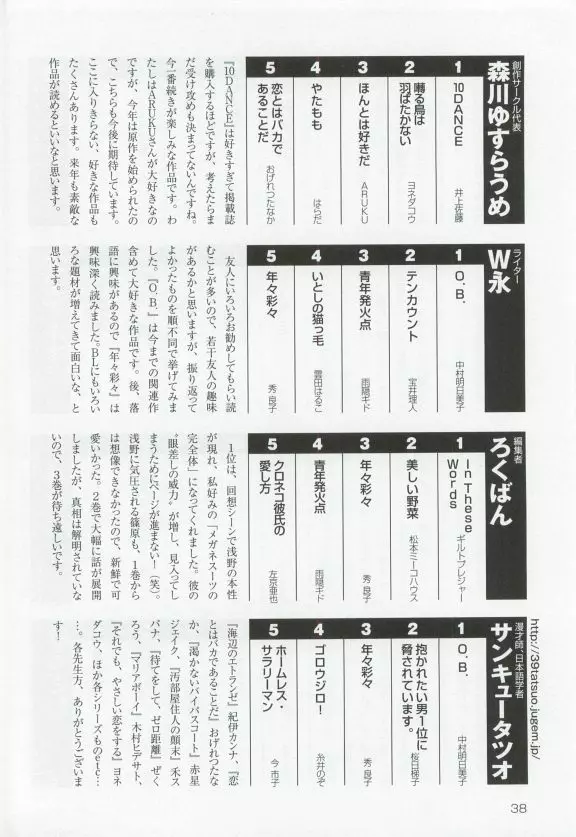 創作サークル代表
森川ゆすらうめ
1
10DANCE
井上佐藤
2
囀る鳥は
羽ばたかない
ヨネダコウ
3
ほんとは好きだ
ARUKU
4
やたもも
はらだ
5
恋とはバカで
あることだ
おげれつたなか
『10DANCE』は好きすぎて掲載誌
を購入するほどですが、考えたらま
だ受け攻めも決まってないんですね。
今一番続きが楽しみな作品です。わ
たしはARUKUさんが大好きなの
ですが、今年は原作を始められたの
で、こちらも今後に期待しています。
ここに入りきらない、好きな作品も
たくさんあります。来年も素敵な
作品が読めるといいなと思います。
ライター
W永
1
O.B.
中村明日美子
2
テンカウント
宝井理人
3
青年発火点
雨隠ギド
4
いとしの猫っ毛
雲田はるこ
5
年々彩々
秀 良子
友人にいろいろお勧めしてもらい読
むことが多いので、若干友人の趣味
があるかと思いますが、振り返って
よかったものを順不同で挙げてみま
した。『O.B.』は今までの関連作
含めて大好きな作品です。後、落
語に興味があるので『年々彩々』は
興味深く読みました。BLにもいろい
ろな題材が増えてきて面白いな、と
思います。
編集者
ろくばん
1
In These
Words
ギルトプレジャー
2
美しい野菜
松本ミーコハウス
3
年々彩々
秀 良子
4
青年発火点
雨隠ギド
5
クロネコ彼氏の
愛し方
左京亜也
1位は、回想シーンで浅野の本性
が現れ、私好みの「メガネスーツの
完全体」になってくれました。彼の
“眼差しの威力”が増し、見入ってし
まうためにページが進まない！（笑）。
浅野に気圧される篠原も、1巻から
は想像できなかったので、新鮮で可
愛いかった。2巻で大幅に話が展開
しましたが、真相は解明されていな
いので、3巻が待ち遠しいです。
http://39tatsuo.jugem.jp/
漫才師、日本語学者
サンキュータツオ
1
O.B.
中村明日美子
2
抱かれたい男1位に
脅されています。
桜日梯子
3
年々彩々
秀 良子
4
ゴロウジロー！
糸井のぞ
5
ホームレス・
サラリーマン
今 市子
『海辺のエトランゼ』紀伊カンナ、『恋
とはバカであることだ』おげれつたな
か、『渇かないバイパスコート』赤星
ジェイク、『汚部屋住人の顛末』禾ス
バナ、『待てをして、ゼロ距離』ぜく
ろう、『マリアボーイ』木村ヒデサト、
『それでも、やさしい恋をする』ヨネ
ダコウ、ほか各シリーズものetc…
…。各先生方、ありがとうございま
す！
38